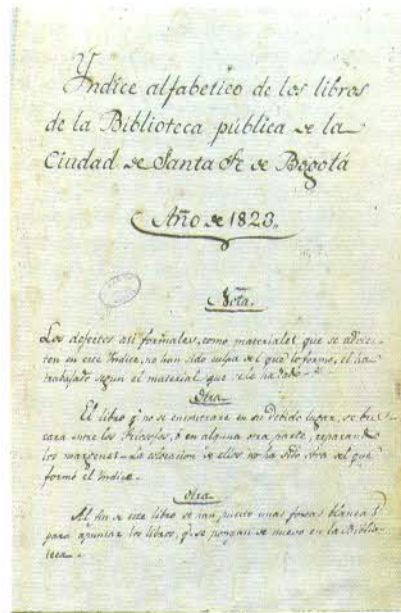 Yndice alfabetico de los libros
de la Biblioteca pública de la
Ciudad de Santa Fe de Bogotá
Año de 1823.
Nota.
Los defectos asi formales, como materiales que se advier-
ten en este Yndice, no han sido culpa del que lo formó, el ha
trabajado segun el material que se le ha dado.
Otra
El libro q.e no se encontrare en su debido lugar, se bus-
cara entre los Filosofos, ó en alguna otra parte, reparando
los margenes. La colocacion de ellos no ha sido obra del que
formó el Yndice.
otra
Al fin de este libro se han puesto unas foxas blancas
para apuntar los libros, q.e se pongan de nuevo en la Biblio-
teca.